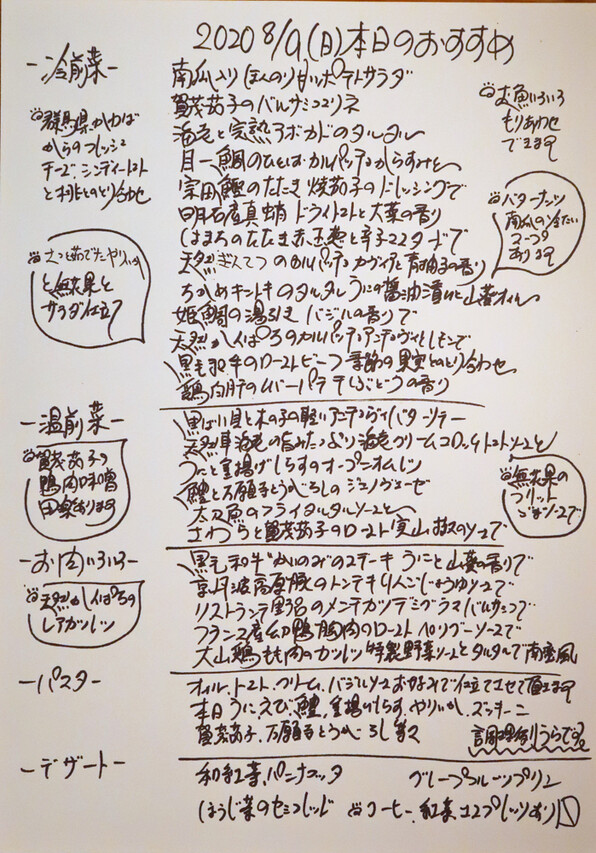 2020 8/9(日)本日のおすすめ
-冷前菜-
南瓜入りほんのり甘いポテトサラダ
賀茂茄子のバルサミコマリネ
海老と完熟アボカドのタルタル
目一鯛のひとはだカルパッチョからすみと
宗田鰹のたたき 焼茄子のドレッシングで
明石産真蛸 ドライトマトと大葉の香り
はまちのたたき赤玉葱と辛子マスタードで
天然ぎんてつのカルパッチョ キャヴィアと青柚子の香り
ちかめキントキのタルタルうにの醤油漬けと山葵オイル
姫鯛の湯引き バジルの香りで
天然かんぱちのカルパッチョアンチョヴィとレモンで
黒毛和牛のローストビーフ 季節の果実とのとり合わせ
鶏白肝のムース パテ 干しぶどうの香り
群馬県かわば
からのフレッシュ
チーズ シシディートマト
と桃とのとり合わせ
さっと茹でたやりいか
と無花果と
サラダ仕立て
お魚いろいろ
もりあわせ
できます
バターナッツ
南瓜の冷たい
スープ
あります
-温前菜-
黒ばい貝と木の子の軽いアンチョヴィバターソテー
天然車海老の旨みたっぷり海老クリームコロッケトマトソースと
うにと釜揚げしらすのオープンオムレツ
鱧と万願寺とうがらしのジェノヴェーゼ
太刀魚のフライタルタルソースと
さわらと賀茂茄子のロースト実山椒のソースで
賀茂茄子の
鴨肉味噌
田楽あります
無花果の
フリット
ごまソースで
-お肉いろいろ-
黒毛和牛"かいのみ"のステーキ うにと山葵の香りで
京丹波高原豚のトンテキりんごじょうゆソースで
リストランテ野呂のメンチカツデミグラスバルサミコで
フランス産幼鴨胸肉のローストペリグーソースで
大山鶏もも肉のカツレツ特製野菜ソースとタルタルで南蛮風
天然かんぱちの
レアカツレツ
-パスタ-
オイル.トマト.クリーム.バジルソースお好みで仕立てさせて頂きます
本日うに.えび.鱧.釜揚げしらす.やりいか.ズッキーニ
賀茂茄子.万願寺とうがらし等々
調理例うらです
-デザート-
和紅茶.パンナコッタ
グレープフルーツプリン
ほうじ茶のセミフレッド
コーヒー.紅茶.エスプレッソあり